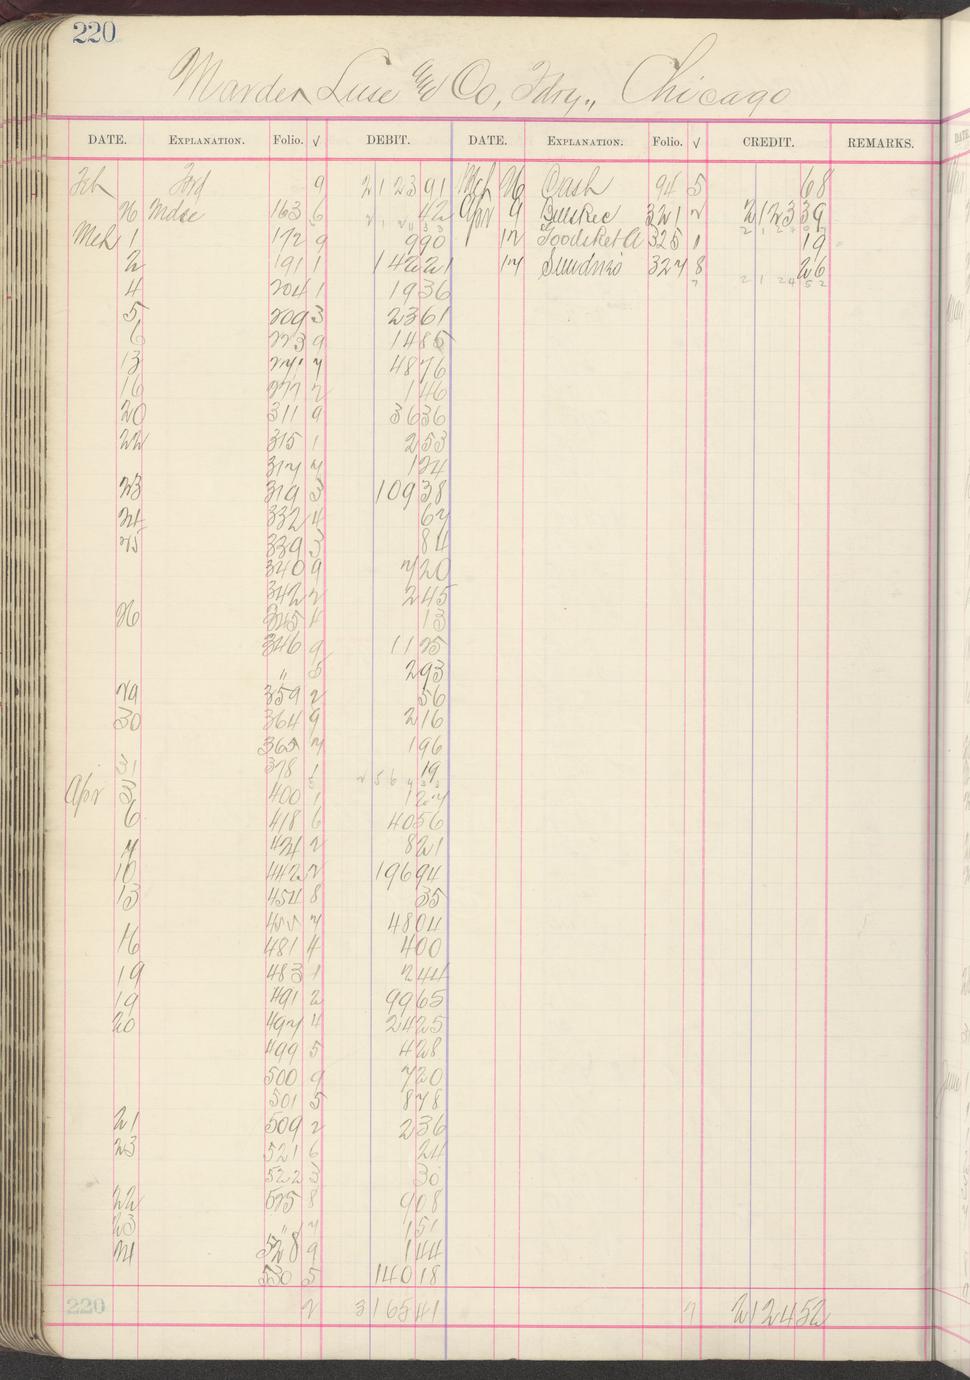 220
Marder Luse & Co, Fdry., Chicago
DATE. EXPLANATION. Folio. √ DEBIT. DATE. EXPLANATION. Folio. √ CREDIT. REMARKS.
Feb Ford 9 2123 91 Mch 26 Cash 94 5 68
26 Mdse 163 6 42 Apr 9 Bills Rec 321 2 2123 39
Mch 1 172 9 9 90 12 Goods Ret A 325 1 19
2 191 1 142 21 17 Sundries 327 8 26
4 204 1 19 36 7 2124 52
5 209 3 23 61
6 223 9 14 85
13 7 48 76
16 277 2 1 46
20 311 9 36 36
22 315 1 2 53
317 7 1 24
23 319 3 109 38
24 332 4 67
25 339 3 84
340 9 7 20
342 2 2 45
26 345 4 13
346 9 11 25
" 5 2 93
29 359 2 56
30 364 9 2 16
365 7 1 96
31 378 1 19
Apr 3 400 1 1 27
6 418 6 40 56
7 424 2 8 21
10 442 2 196 94
13 454 8 35
455 7 48 04
16 481 4 4 00
19 483 1 2 44
19 491 2 99 65
20 497 4 24 25
499 5 4 28
500 9 7 20
501 5 8 78
21 509 2 2 36
23 521 6 24
522 3 30
22 525 8 9 08
23 " 7 1 51
24 528 9 1 44
530 5 140 18
220 2 3165 41 7 2124 52